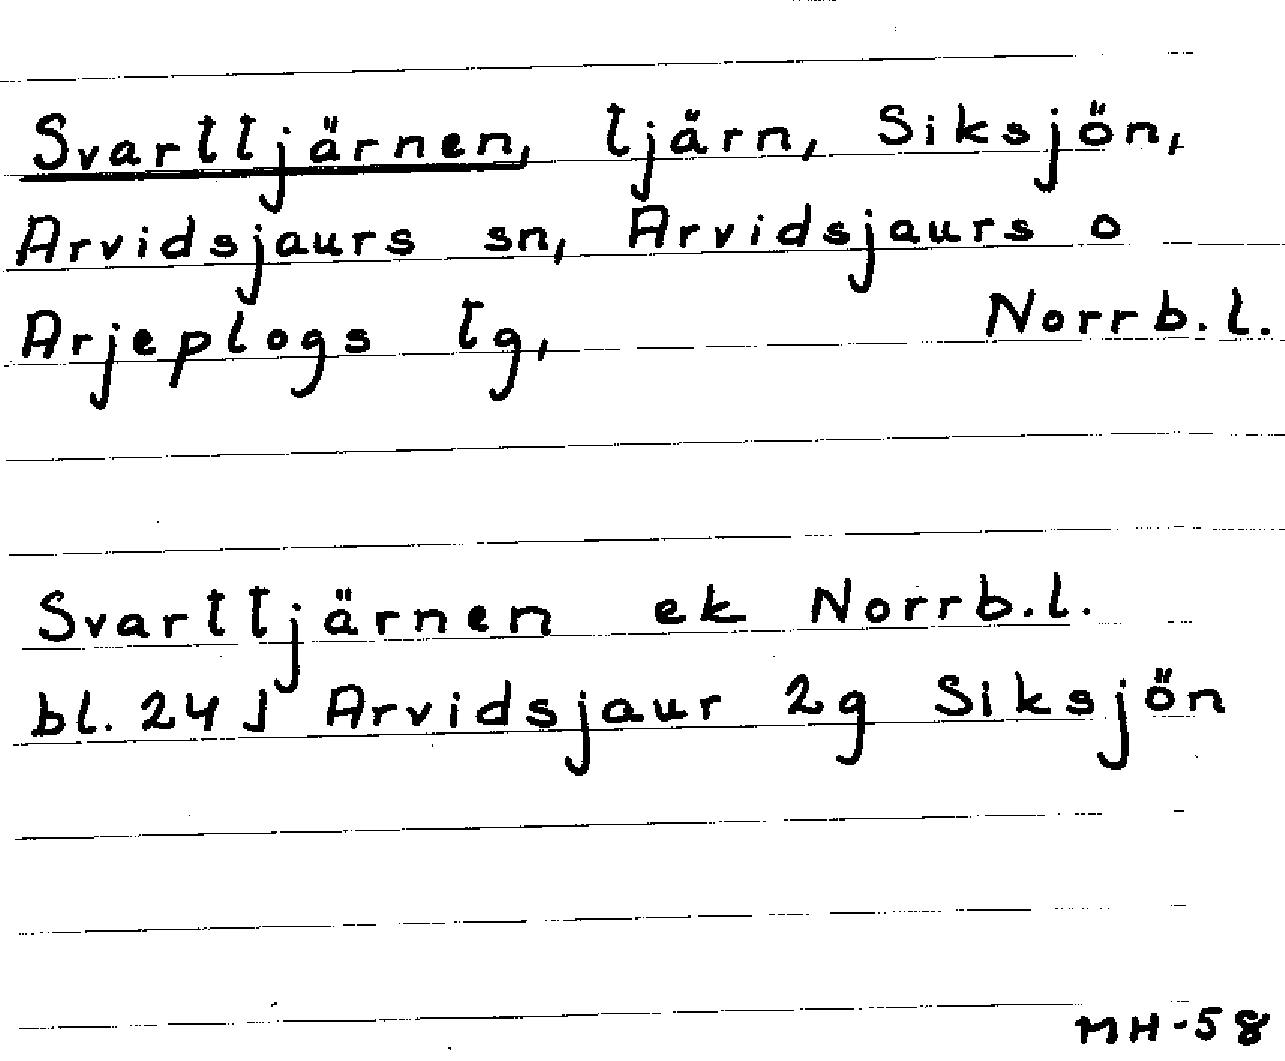 Svarttjärnen, tjärn, Siksjön,
Arvidsjaurs sn, Arvidsjaurs o
Arjeplogs tg, Norrb.l.
Svarttjärnen ek Norrb.l.
bl. 24J Arvidsjaur 2g Siksjön
MH-58